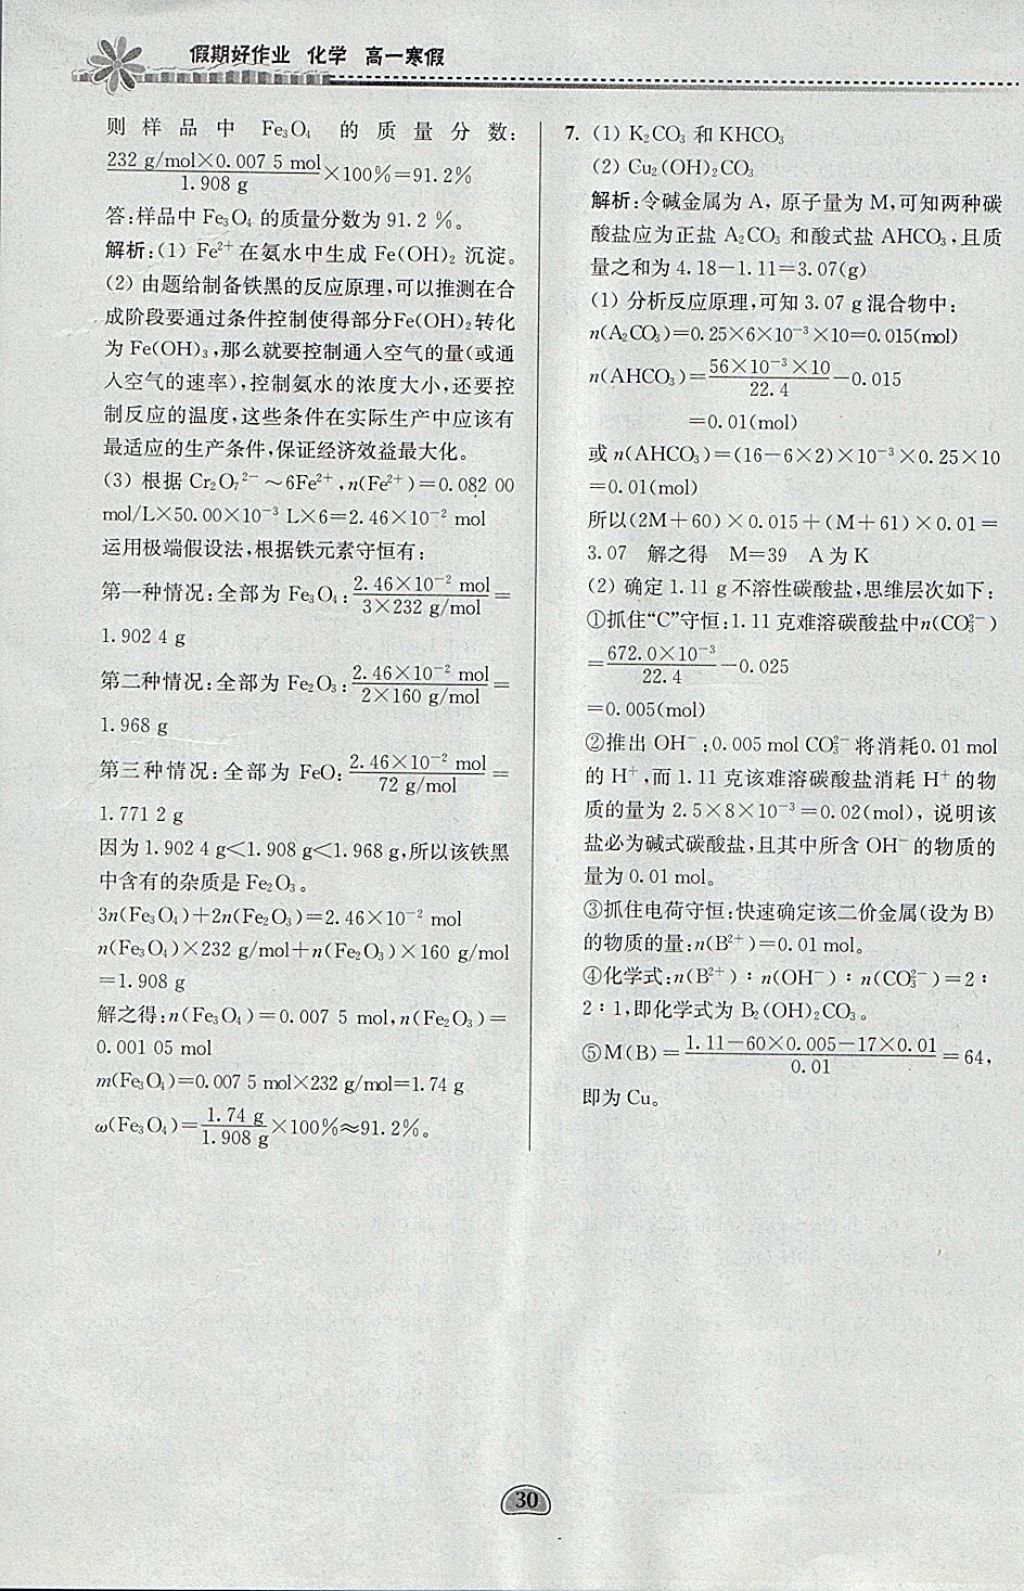 假期好作业 化学 高一寒假
则样品中 Fe₃O₄ 的质量分数:
232 g/mol×0.007 5 mol/1.908 g×100%=91.2%
答:样品中 Fe₃O₄ 的质量分数为 91.2 %。
解析:(1) Fe²⁺在氨水中生成 Fe(OH)₂ 沉淀。
(2) 由题给制备铁黑的反应原理,可以推测在合
成阶段要通过条件控制使得部分Fe(OH)₂转化
为 Fe(OH)₃,那么就要控制通入空气的量(或通
入空气的速率),控制氨水的浓度大小,还要控
制反应的温度,这些条件在实际生产中应该有
最适应的生产条件,保证经济效益最大化。
(3) 根据 Cr₂O₇²⁻～6Fe²⁺,n(Fe²⁺)=0.082 00
mol/L×50.00×10⁻³ L×6=2.46×10⁻² mol
运用极端假设法,根据铁元素守恒有:
第一种情况:全部为 Fe₃O₄:2.46×10⁻² mol/3×232 g/mol=
1.902 4 g
第二种情况:全部为 Fe₂O₃:2.46×10⁻² mol/2×160 g/mol=
1.968 g
第三种情况:全部为 FeO:2.46×10⁻² mol/72 g/mol=
1.771 2 g
因为 1.902 4 g<1.908 g<1.968 g,所以该铁黑
中含有的杂质是 Fe₂O₃。
3n(Fe₃O₄)+2n(Fe₂O₃)=2.46×10⁻² mol
n(Fe₃O₄)×232 g/mol+n(Fe₂O₃)×160 g/mol
=1.908 g
解之得:n(Fe₃O₄)=0.007 5 mol,n(Fe₂O₃)=
0.001 05 mol
m(Fe₃O₄)=0.007 5 mol×232 g/mol=1.74 g
ω(Fe₃O₄)=1.74 g/1.908 g×100%≈91.2%。
7. (1) K₂CO₃ 和 KHCO₃
(2) Cu₂(OH)₂CO₃
解析:令碱金属为 A, 原子量为 M,可知两种碳
酸盐应为正盐 A₂CO₃ 和酸式盐 AHCO₃,且质
量之和为 4.18−1.11=3.07(g)
(1) 分析反应原理,可知 3.07 g 混合物中:
n(A₂CO₃)=0.25×6×10⁻³×10=0.015(mol)
n(AHCO₃)=56×10⁻³×10/22.4−0.015
=0.01(mol)
或 n(AHCO₃)=(16−6×2)×10⁻³×0.25×10
=0.01(mol)
所以(2M+60)×0.015+(M+61)×0.01=
3.07 解之得 M=39 A 为 K
(2) 确定 1.11 g 不溶性碳酸盐,思维层次如下:
①抓住“C”守恒:1.11 克难溶碳酸盐中n(CO₃²⁻)
=672.0×10⁻³/22.4−0.025
=0.005(mol)
②推出 OH⁻:0.005 mol CO₃²⁻ 将消耗0.01 mol
的 H⁺,而 1.11 克该难溶碳酸盐消耗 H⁺的物
质的量为 2.5×8×10⁻³=0.02(mol), 说明该
盐必为碱式碳酸盐,且其中所含 OH⁻的物质的
量为 0.01 mol。
③抓住电荷守恒:快速确定该二价金属(设为 B)
的物质的量:n(B²⁺)=0.01 mol。
④化学式:n(B²⁺)∶n(OH⁻)∶n(CO₃²⁻)=2∶
2∶1,即化学式为 B₂(OH)₂CO₃。
⑤M(B)=1.11−60×0.005−17×0.01/0.01=64,
即为 Cu。
30